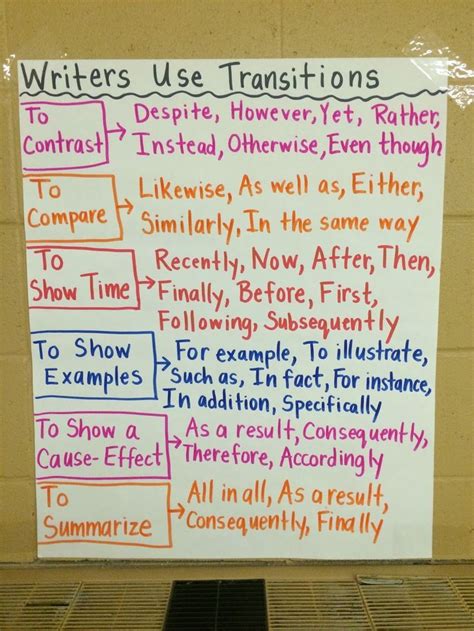 Writers Use Transitions
To Contrast
Despite, However, Yet, Rather,
Instead, Otherwise, Even though
To Compare
Likewise, As well as, Either,
Similarly, In the same way
To Show Time
Recently, Now, After, Then,
Finally, Before, First,
Following, Subsequently
To Show Examples
For example, To illustrate,
Such as, In fact, For instance,
In addition, Specifically
To Show a Cause-Effect
As a result, Consequently,
Therefore, Accordingly
To Summarize
All in all, As a result,
Consequently, Finally